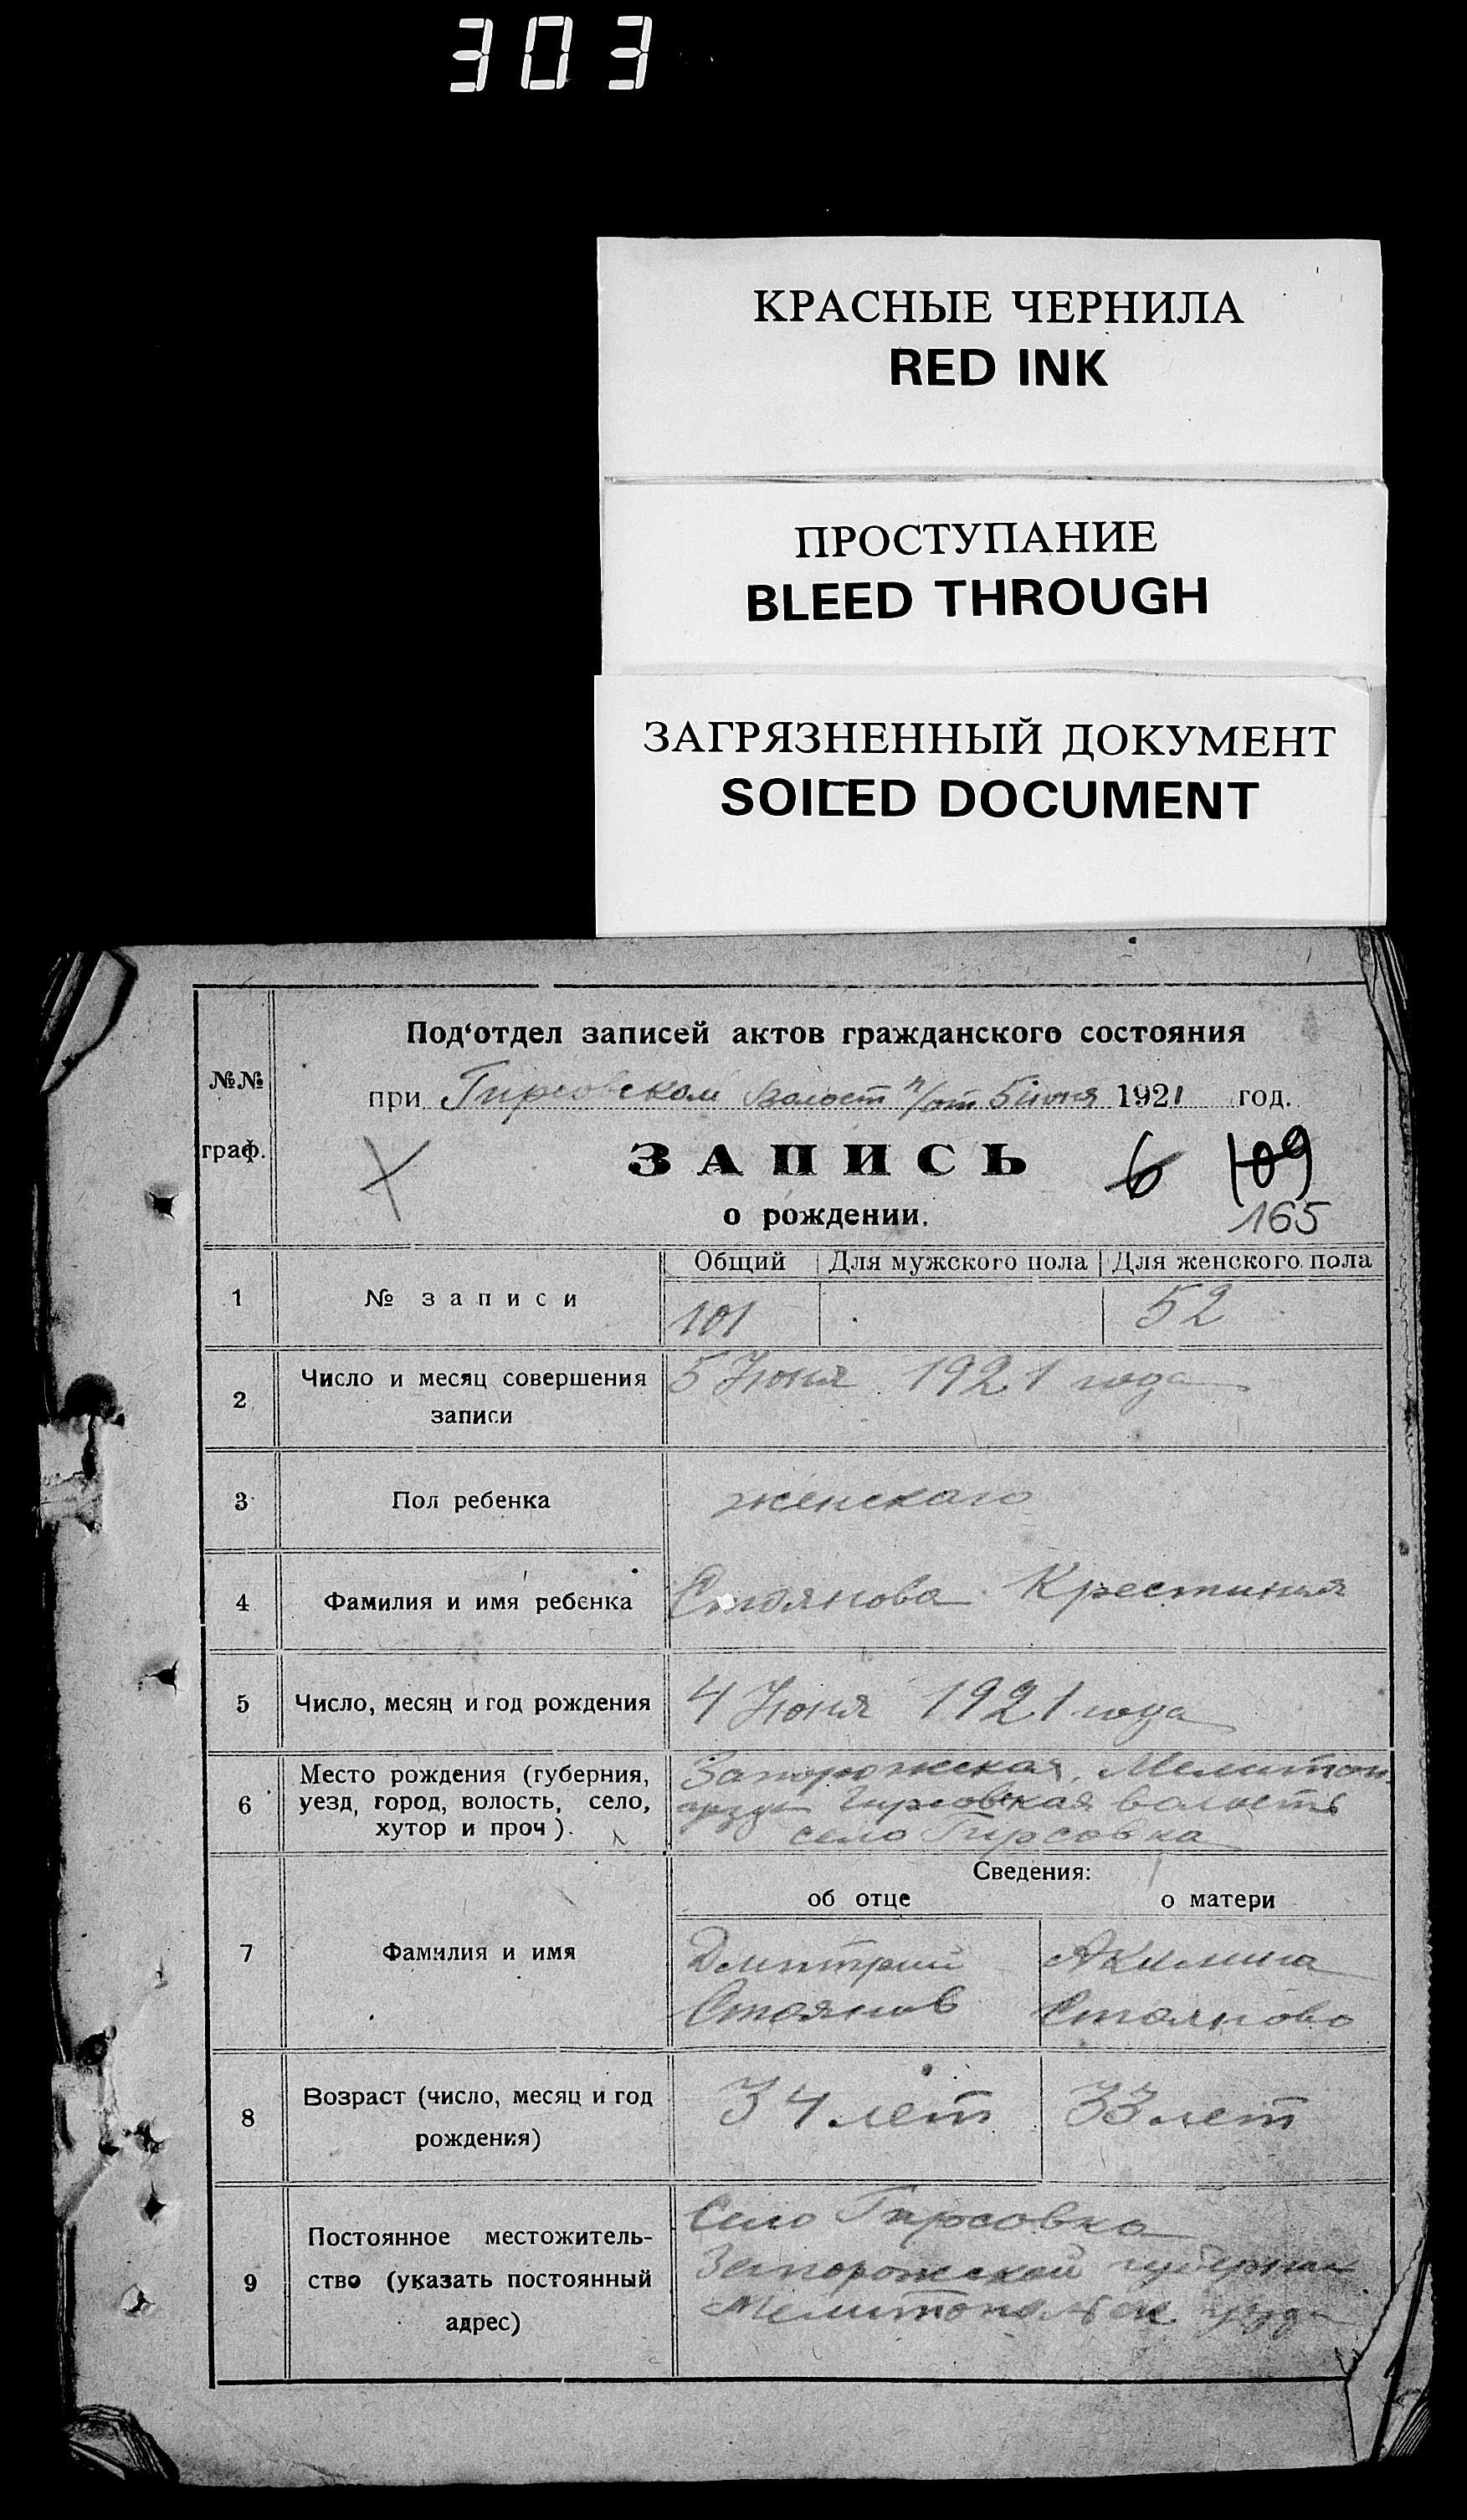 303
КРАСНЫЕ ЧЕРНИЛА
RED INK
ПРОСТУПАНИЕ
BLEED THROUGH
ЗАГРЯЗНЕННЫЙ ДОКУМЕНТ
SOILED DOCUMENT
№№
граф.
Под‘отдел записей актов гражданского состояния
при Гирсовском Волост 5 июня 1921 год.
ЗАПИСЬ 6 109
о рождении. 165
Общий Для мужского пола Для женского пола
1 № записи 101 52
2 Число и месяц совершения 5 Июня 1921 года
записи
3 Пол ребенка женскаго
4 Фамилия и имя ребенка Стоянова Крестиния
5 Число, месяц и год рождения 4 Июня 1921 года
6 Место рождения (губерния, Запорожская, Мелитоп
уезд, город, волость, село, Гирсовская волость
хутор и проч). село Гирсовка
Сведения:
об отце о матери
7 Фамилия и имя Дмитрий Акилина
Стоянов Стоянова
8 Возраст (число, месяц и год 34 лет 33 лет
рождения)
9 Постоянное местожитель- Село Гирсовка
ство (указать постоянный Запорожской губернии
адрес) Мелитопольск уезда